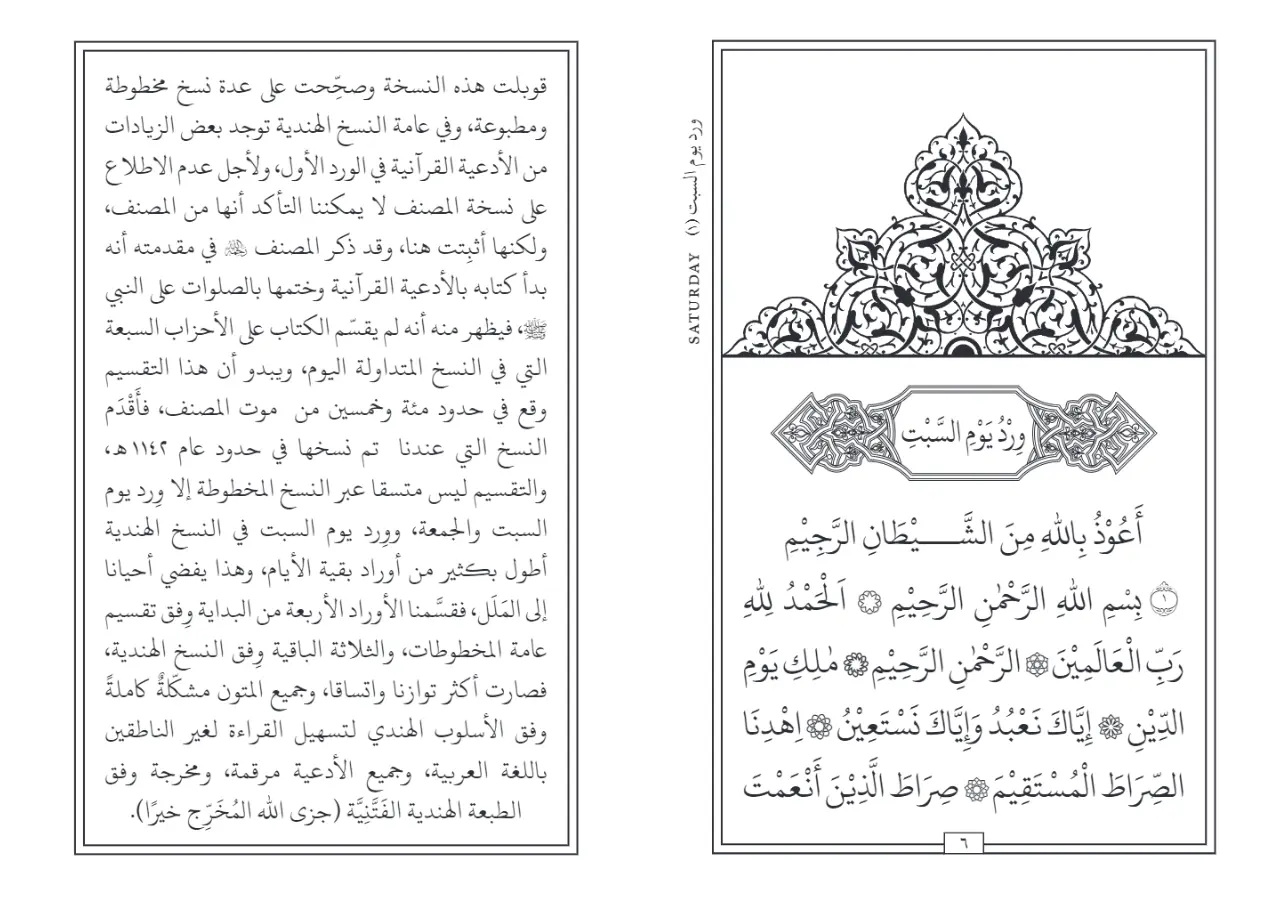 ورد يوم السبت (١)
SATURDAY
وِرْدُ يَوْمِ السَّبْتِ
أَعُوْذُ بِاللهِ مِنَ الشَّـــيْطَانِ الرَّجِيْمِ
١ بِسْمِ اللهِ الرَّحْمٰنِ الرَّحِيْمِ ۞ اَلْحَمْدُ لِلهِ
رَبِّ الْعَالَمِيْنَ ۞ الرَّحْمٰنِ الرَّحِيْمِ ۞ مٰلِكِ يَوْمِ
الدِّيْنِ ۞ إِيَّاكَ نَعْبُدُ وَإِيَّاكَ نَسْتَعِيْنُ ۞ اِهْدِنَا
الصِّرَاطَ الْمُسْتَقِيْمَ ۞ صِرَاطَ الَّذِيْنَ أَنْعَمْتَ
٦
قوبلت هذه النسخة وصحِّحت على عدة نسخ مخطوطة
ومطبوعة، وفي عامة النسخ الهندية توجد بعض الزيادات
من الأدعية القرآنية في الورد الأول، ولأجل عدم الاطلاع
على نسخة المصنف لا يمكننا التأكد أنها من المصنف،
ولكنها أثبِتت هنا، وقد ذكر المصنف في مقدمته أنه
بدأ كتابه بالأدعية القرآنية وختمها بالصلوات على النبي
ﷺ، فيظهر منه أنه لم يقسّم الكتاب على الأحزاب السبعة
التي في النسخ المتداولة اليوم، ويبدو أن هذا التقسيم
وقع في حدود مئة وخمسين من موت المصنف، فأَقْدَم
النسخ التي عندنا تم نسخها في حدود عام ١١٤٢هـ،
والتقسيم ليس متسقا عبر النسخ المخطوطة إلا وِرد يوم
السبت والجمعة، ووِرد يوم السبت في النسخ الهندية
أطول بكثير من أوراد بقية الأيام، وهذا يفضي أحيانا
إلى المَلَل، فقسَّمنا الأوراد الأربعة من البداية وِفق تقسيم
عامة المخطوطات، والثلاثة الباقية وِفق النسخ الهندية،
فصارت أكثر توازنا واتساقا، وجميع المتون مشكّلةٌ كاملةً
وفق الأسلوب الهندي لتسهيل القراءة لغير الناطقين
باللغة العربية، وجميع الأدعية مرقمة، ومخرجة وفق
الطبعة الهندية الفَتَّنِيَّة (جزى الله المُخَرِّج خيرًا).